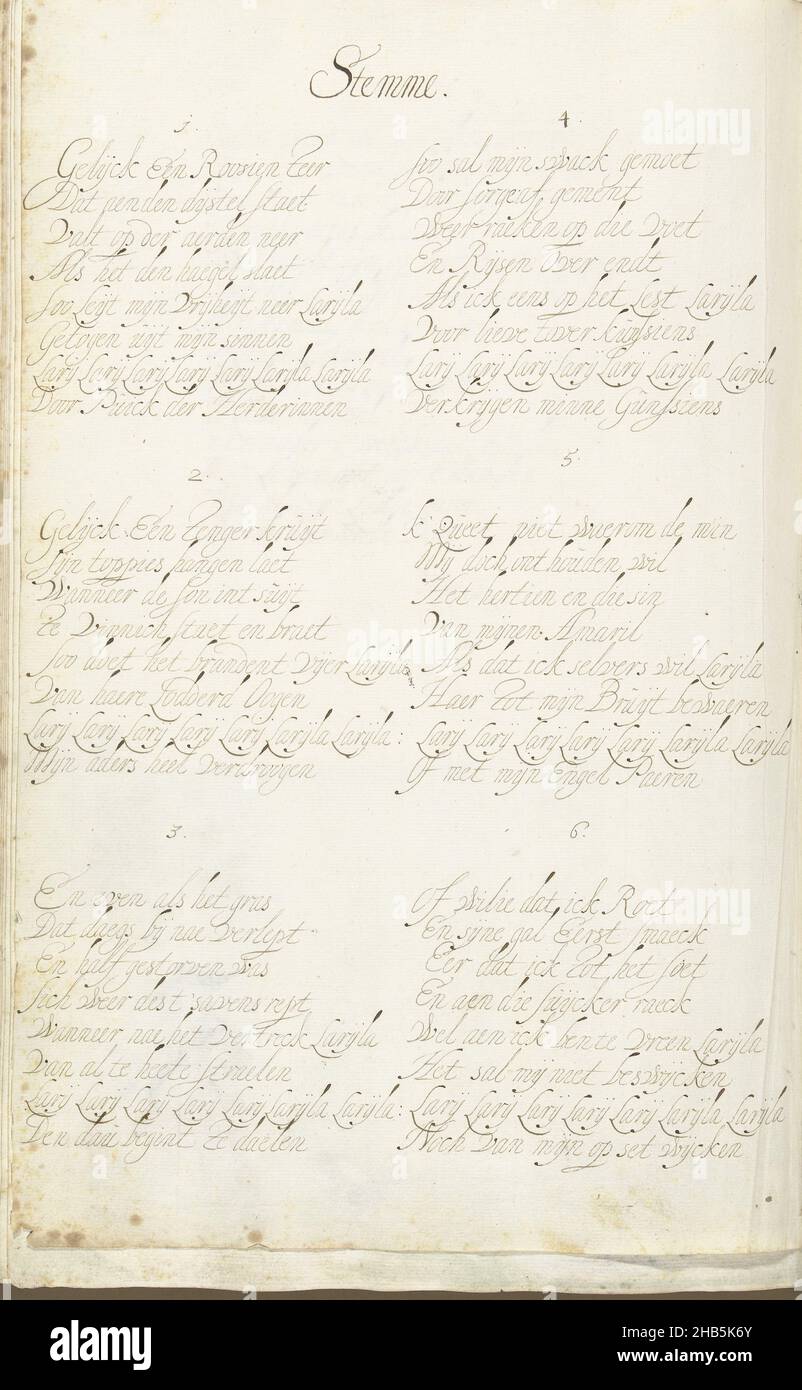 Stemme.
1.
Gelijck Een Roosien Teer
Dat aen den dijstel staet
Valt op der aerden neer
Als het den haegel slaet
Soo Leijt mijn Vrijheijt neer Larijla
Getogen uijt mijn sinnen
Larij Larij Larij Larij Larij Larijla Larijla
Door Puick der Herderinnen
2.
Gelijck Een Tenger kruijt
Sijn toppies hangen laet
Wanneer de Son int suijt
Te Vinnich staet en braet
Soo doet het brandent Vijer Larijla
Van haere Lodderd Oogen
Larij Larij Larij Larij Larij Larijla Larijla:
Mijn aders heel Verdroogen
3.
En even als het gras
Dat daegs bij nae Verlept
En half gestorven was
Sich weer dest savens rept
Wanneer nae het Vertreck Larijla
Van al te heete Straelen
Larij Larij Larij Larij Larij Larijla Larijla:
Den dau begint Te daelen
4.
Soo sal mijn swack gemoet
Door Sorgen gement
Weer raeken op die Voet
En Rijsen Over endt
Als ick eens op het Lest Larijla
Voor lieve tover kunsiens
Larij Larij Larij Larij Larij Larijla Larijla
Verkrijgen minne Gunsiens
5.
k' Queet niet waerom de min
Mij doch ont houden wil
Het hertien en die sin
Van mijnen Amaril
Als dat ick selvers wil Larijla
Haer Tot mijn Bruijt bewaeren
Larij Larij Larij Larij Larij Larijla Larijla
Of met mijn Engel Paeren
6.
Of wilie dat ick Roet
En sijne gal Eerst smaeck
Eer dat ick Tot het soet
En aen die suijcker raeck
Wel aen ick ben te Vreen Larijla
Het sal mij niet beswijcken
Larij Larij Larij Larij Larij Larijla Larijla
Noch Van mijn op set wijcken
alamy
Image ID: 2HB5K6Y
www.alamy.com